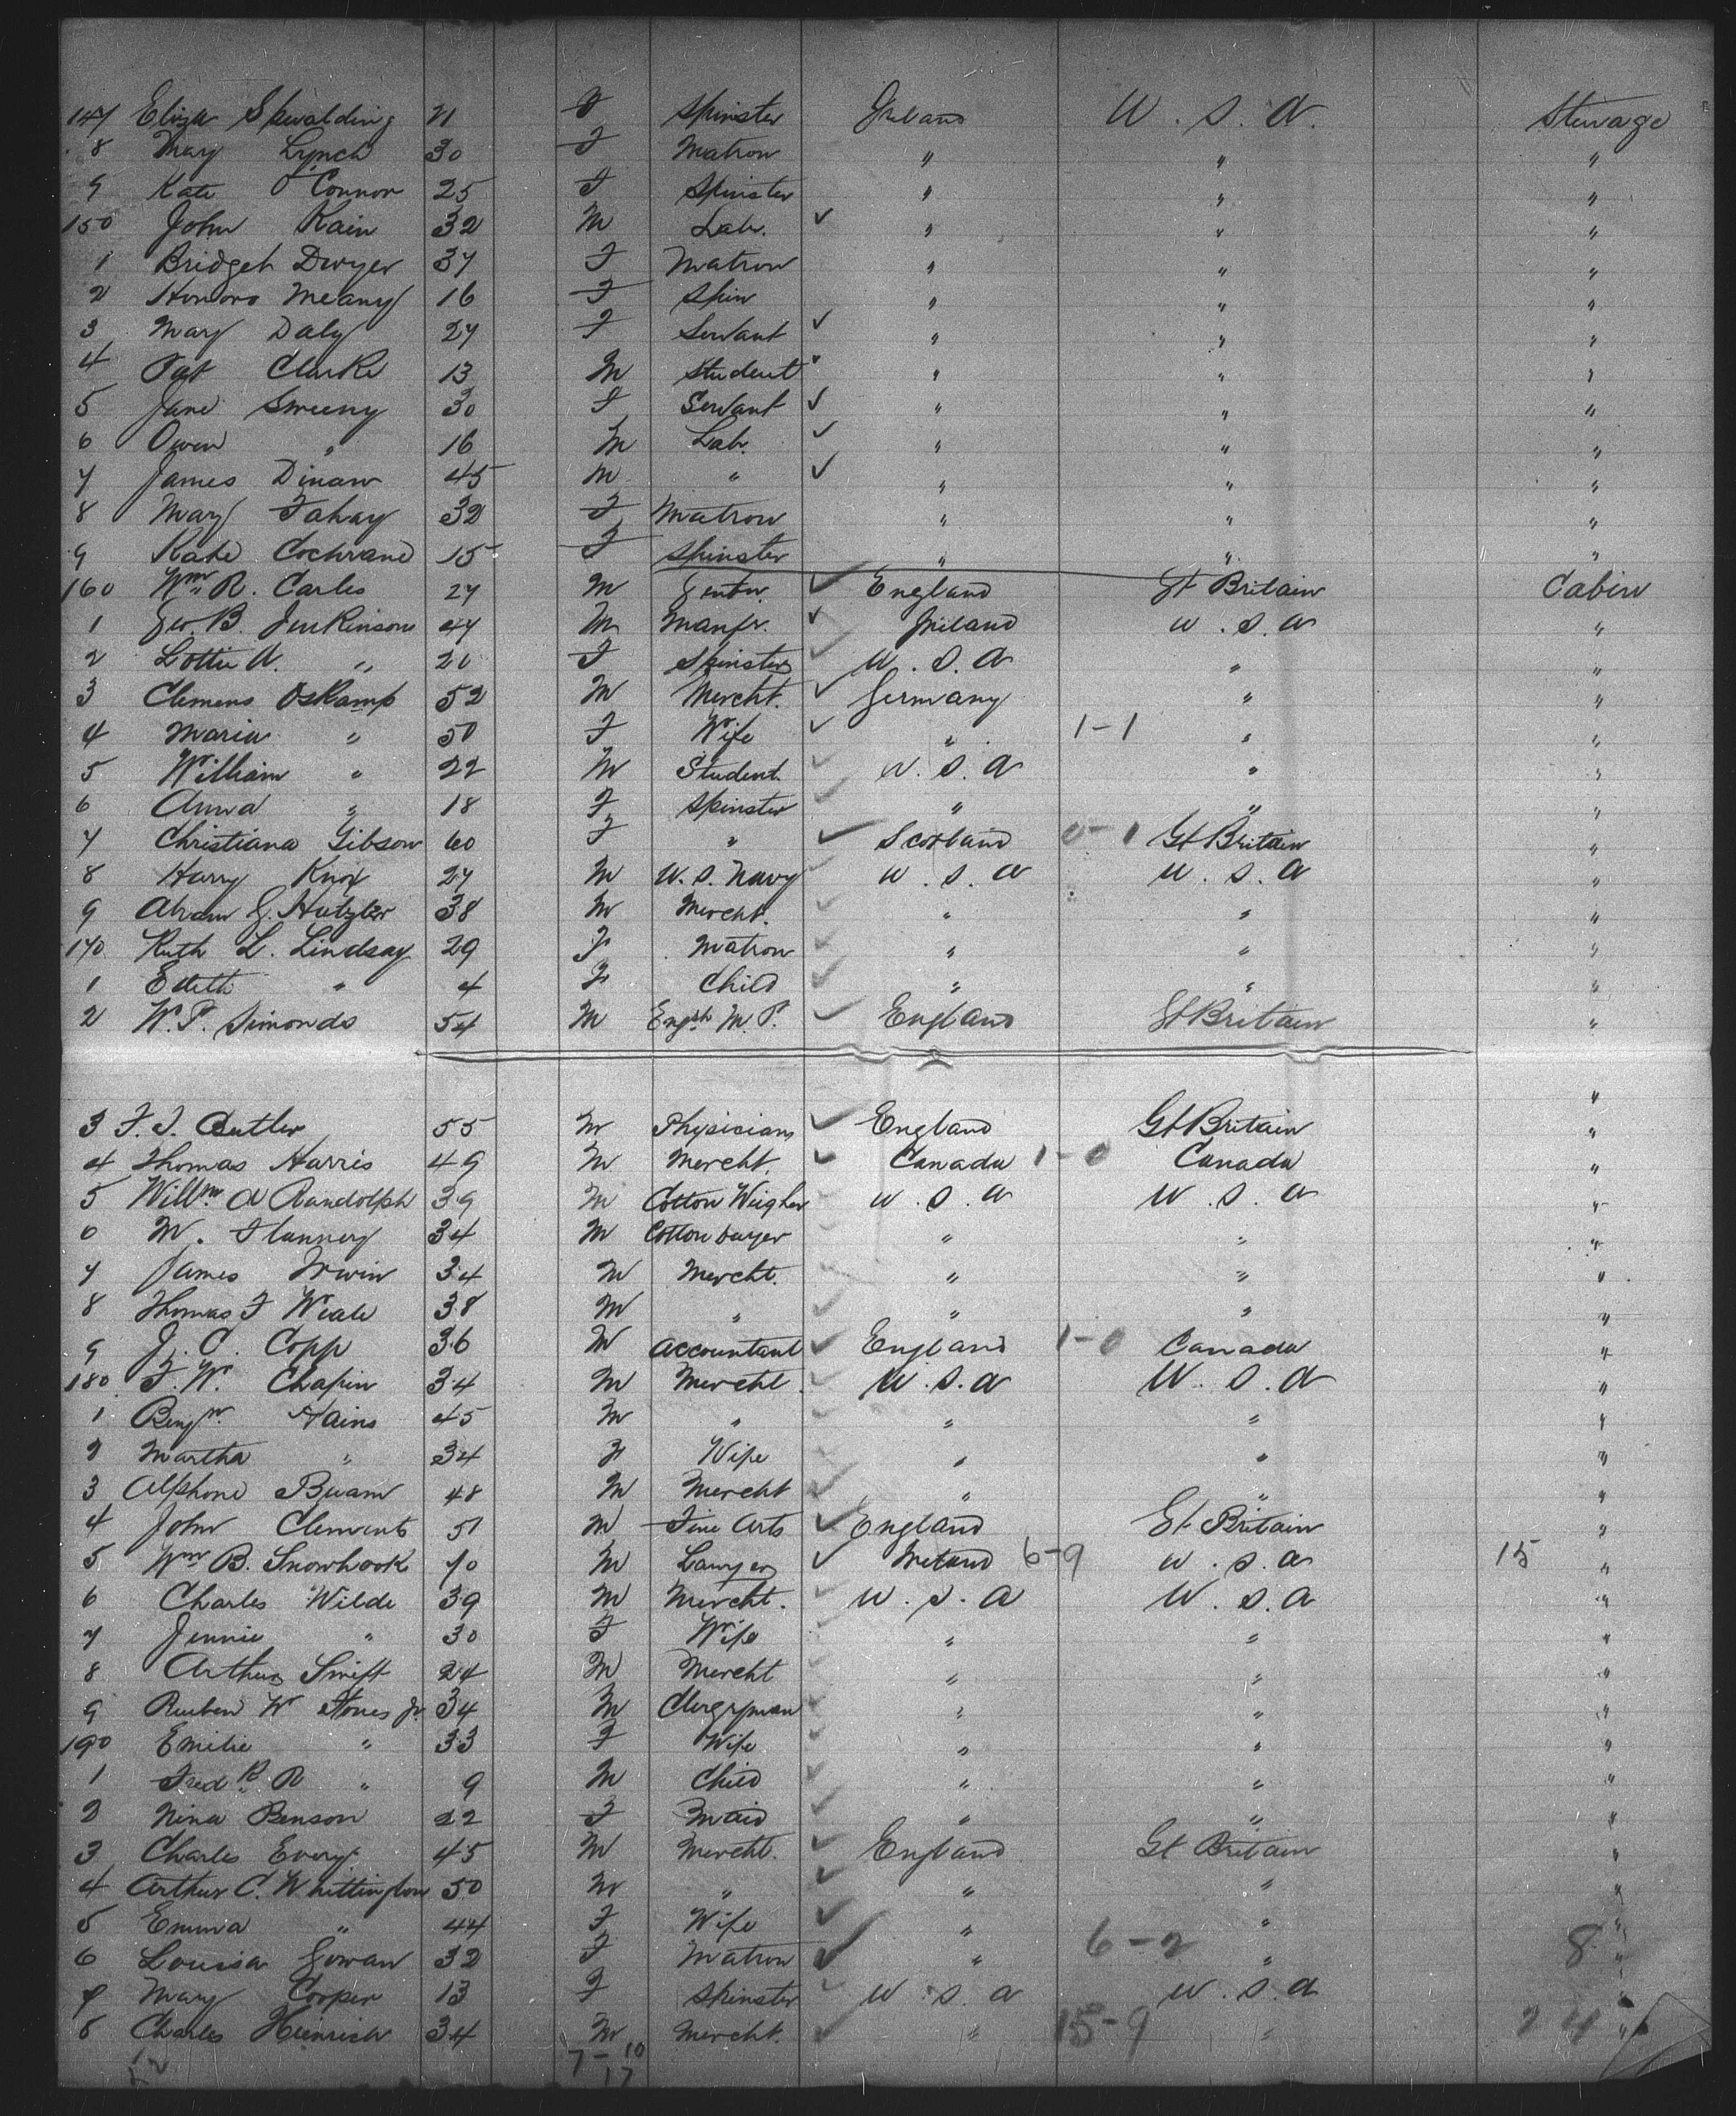 147 Eliza Spaulding 21 F Spinster Ireland U.S.A. Steerage
8 Mary Lynch 30 F Matron " " "
9 Kate O'Connor 25 F Spinster " " "
150 John Kain 32 M Lab. ✓ " " "
1 Bridget Dwyer 37 F Matron " " "
2 Honoro Meany 16 F Spin " " "
3 Mary Daly 27 F Servant ✓ " " "
4 Pat Clarke 13 M Student ✓ " " "
5 Jane Sweeny 30 F Servant ✓ " " "
6 Owen " 16 M Lab. ✓ " " "
7 James Dinan 45 M " ✓ " " "
8 Mary Fahay 32 F Matron " " "
9 Kate Cochrane 15 F Spinster " " "
160 Wm R. Carles 27 M Gentn. ✓ England Gt Britain Cabin
1 Geo. B. Jenkinson 47 M Manfr. ✓ Ireland U.S.A "
2 Lottie A. " 20 F Spinster ✓ U.S.A " "
3 Clemens Oskamp 52 M Mercht. ✓ Germany " "
4 Maria " 50 F Wife ✓ " 1-1 " "
5 William " 22 M Student ✓ U.S.A " "
6 Anna " 18 F Spinster ✓ " " "
7 Christiana Gibson 60 F " ✓ Scotland 0-1 Gt Britain "
8 Harry Knox 27 M U.S. Navy ✓ U.S.A U.S.A "
9 Abram G. Hutzler 38 M Mercht. ✓ " " "
170 Ruth L. Lindsay 29 F Matron ✓ " " "
1 Edith " 4 F Child ✓ " " "
2 W.P. Simonds 54 M Engsh M.P. ✓ England Gt Britain "
"
3 F.J. Butler 55 M Physician ✓ England Gt Britain "
4 Thomas Harris 49 M Mercht. ✓ Canada 1-0 Canada "
5 Willm A Randolph 39 M Cotton Weigher ✓ U.S.A U.S.A "
6 M. Flannery 34 M Cotton buyer ✓ " " "
7 James Irwin 34 M Mercht. ✓ " " "
8 Thomas F Weale 38 M " ✓ " " "
9 J.C. Copp 36 M Accountant ✓ England 1-0 Canada "
180 F.W. Chapin 34 M Mercht. ✓ U.S.A U.S.A "
1 Benjn. Hains 45 M " ✓ " " "
2 Martha " 34 F Wife ✓ " " "
3 Alphone 48 M Mercht ✓ " " "
4 John Clements 51 M Fine Arts ✓ England Gt Britain "
5 Wm B. Snowhook 40 M Lawyer ✓ Ireland 6-9 U.S.A 15 "
6 Charles Wilde 39 M Mercht. ✓ U.S.A U.S.A "
7 Jennie " 30 F Wife ✓ " " "
8 Arthur Swift 24 M Mercht ✓ " " "
9 Reuben W Jones Jr. 34 M Clergyman ✓ " " "
190 Emilie " 33 F Wife ✓ " " "
1 Fredk R " 9 M Child ✓ " " "
2 Nina Benson 22 F Maid ✓ " " "
3 Charles Every 45 M Mercht. ✓ England Gt Britain "
4 Arthur C. Whittington 50 M " ✓ " " "
5 Emma " 44 F Wife ✓ " " "
6 Louisa Gowan 32 F Matron ✓ " 6-2 " 8 "
7 Mary Cooper 13 F Spinster ✓ U.S.A U.S.A "
8 Charles Heinrich 34 M Mercht. ✓ " 15-9 " 24 "
7-10
17